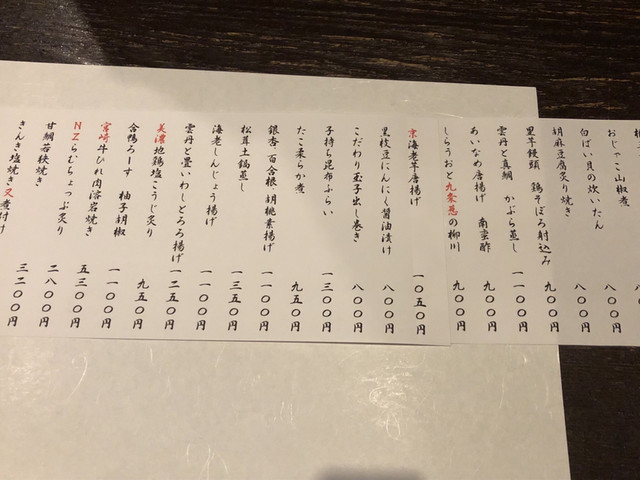 おじゃこ山椒煮
八〇〇円
白ばい貝の炊いたん
八〇〇円
胡麻豆腐炙り焼き
九〇〇円
里芋饅頭 鶏そぼろ射込み
九〇〇円
雲丹と真鯛 かぶら蒸し
一一〇〇円
あいなめ唐揚げ 南蛮酢
九〇〇円
しらうおと九条葱の柳川
九〇〇円
京海老芋唐揚げ
一〇五〇円
黒枝豆にんにく醤油漬け
八〇〇円
こだわり玉子出し巻き
八〇〇円
子持ち昆布ふらい
一三〇〇円
たこ柔らか煮
九五〇円
銀杏・百合根・胡桃素揚げ
一一〇〇円
松茸土鍋蒸し
一三五〇円
海老しんじょう揚げ
一一〇〇円
雲丹と畳いわしとろろ揚げ
一二五〇円
美濃地鶏塩こうじ炙り
九五〇円
合鴨ろーす 柚子胡椒
一一〇〇円
宮崎牛ひれ肉溶岩焼き
五三〇〇円
NZらむちょっぷ炙り
二八〇〇円
甘鯛若狭焼き
二八〇〇円
きんき塩焼き又煮付け
三二〇〇円